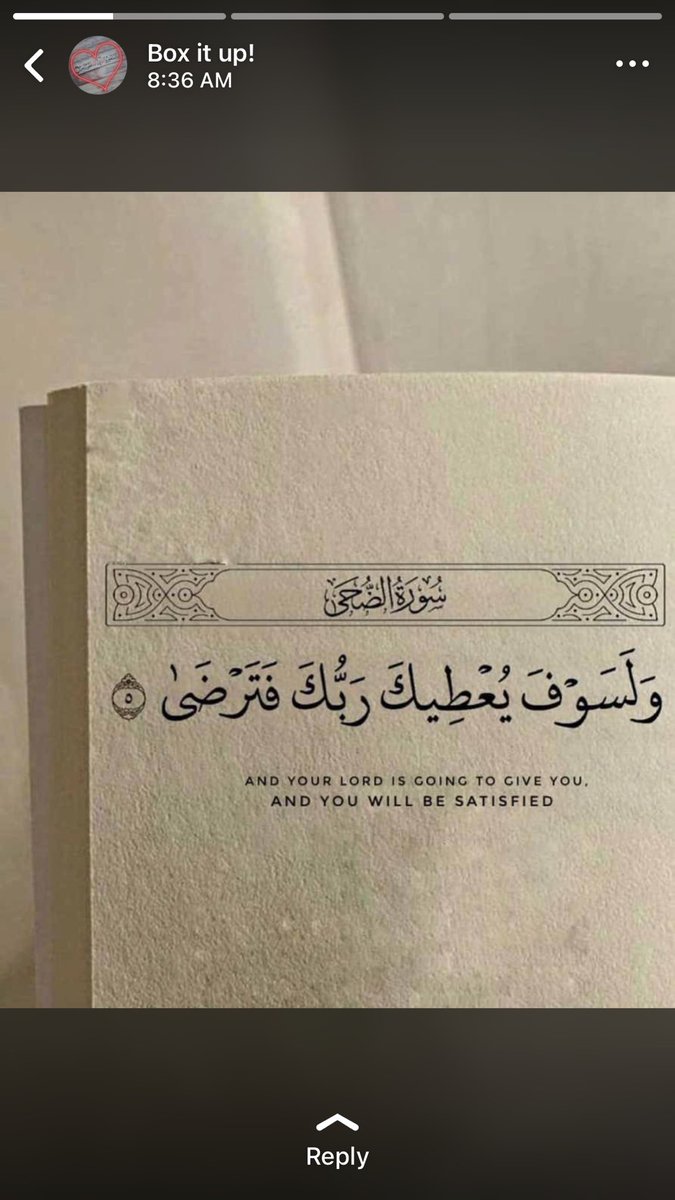 Box it up!
8:36 AM
سُورَةُ الضُّحَى
وَلَسَوْفَ يُعْطِيكَ رَبُّكَ فَتَرْضَىٰ ٥
AND YOUR LORD IS GOING TO GIVE YOU,
AND YOU WILL BE SATISFIED
Reply